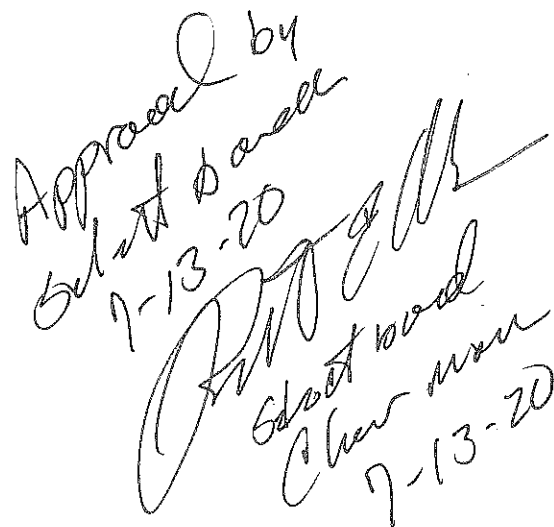 Approval by
Select board
7-13-20
Select board
Chair man
7-13-20